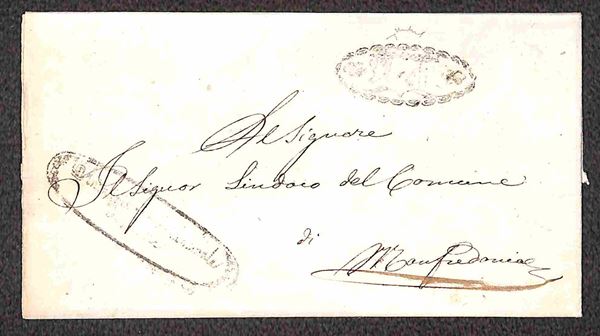 Al Signore
Il Signor Sindaco del Comune
di
Manfredonia